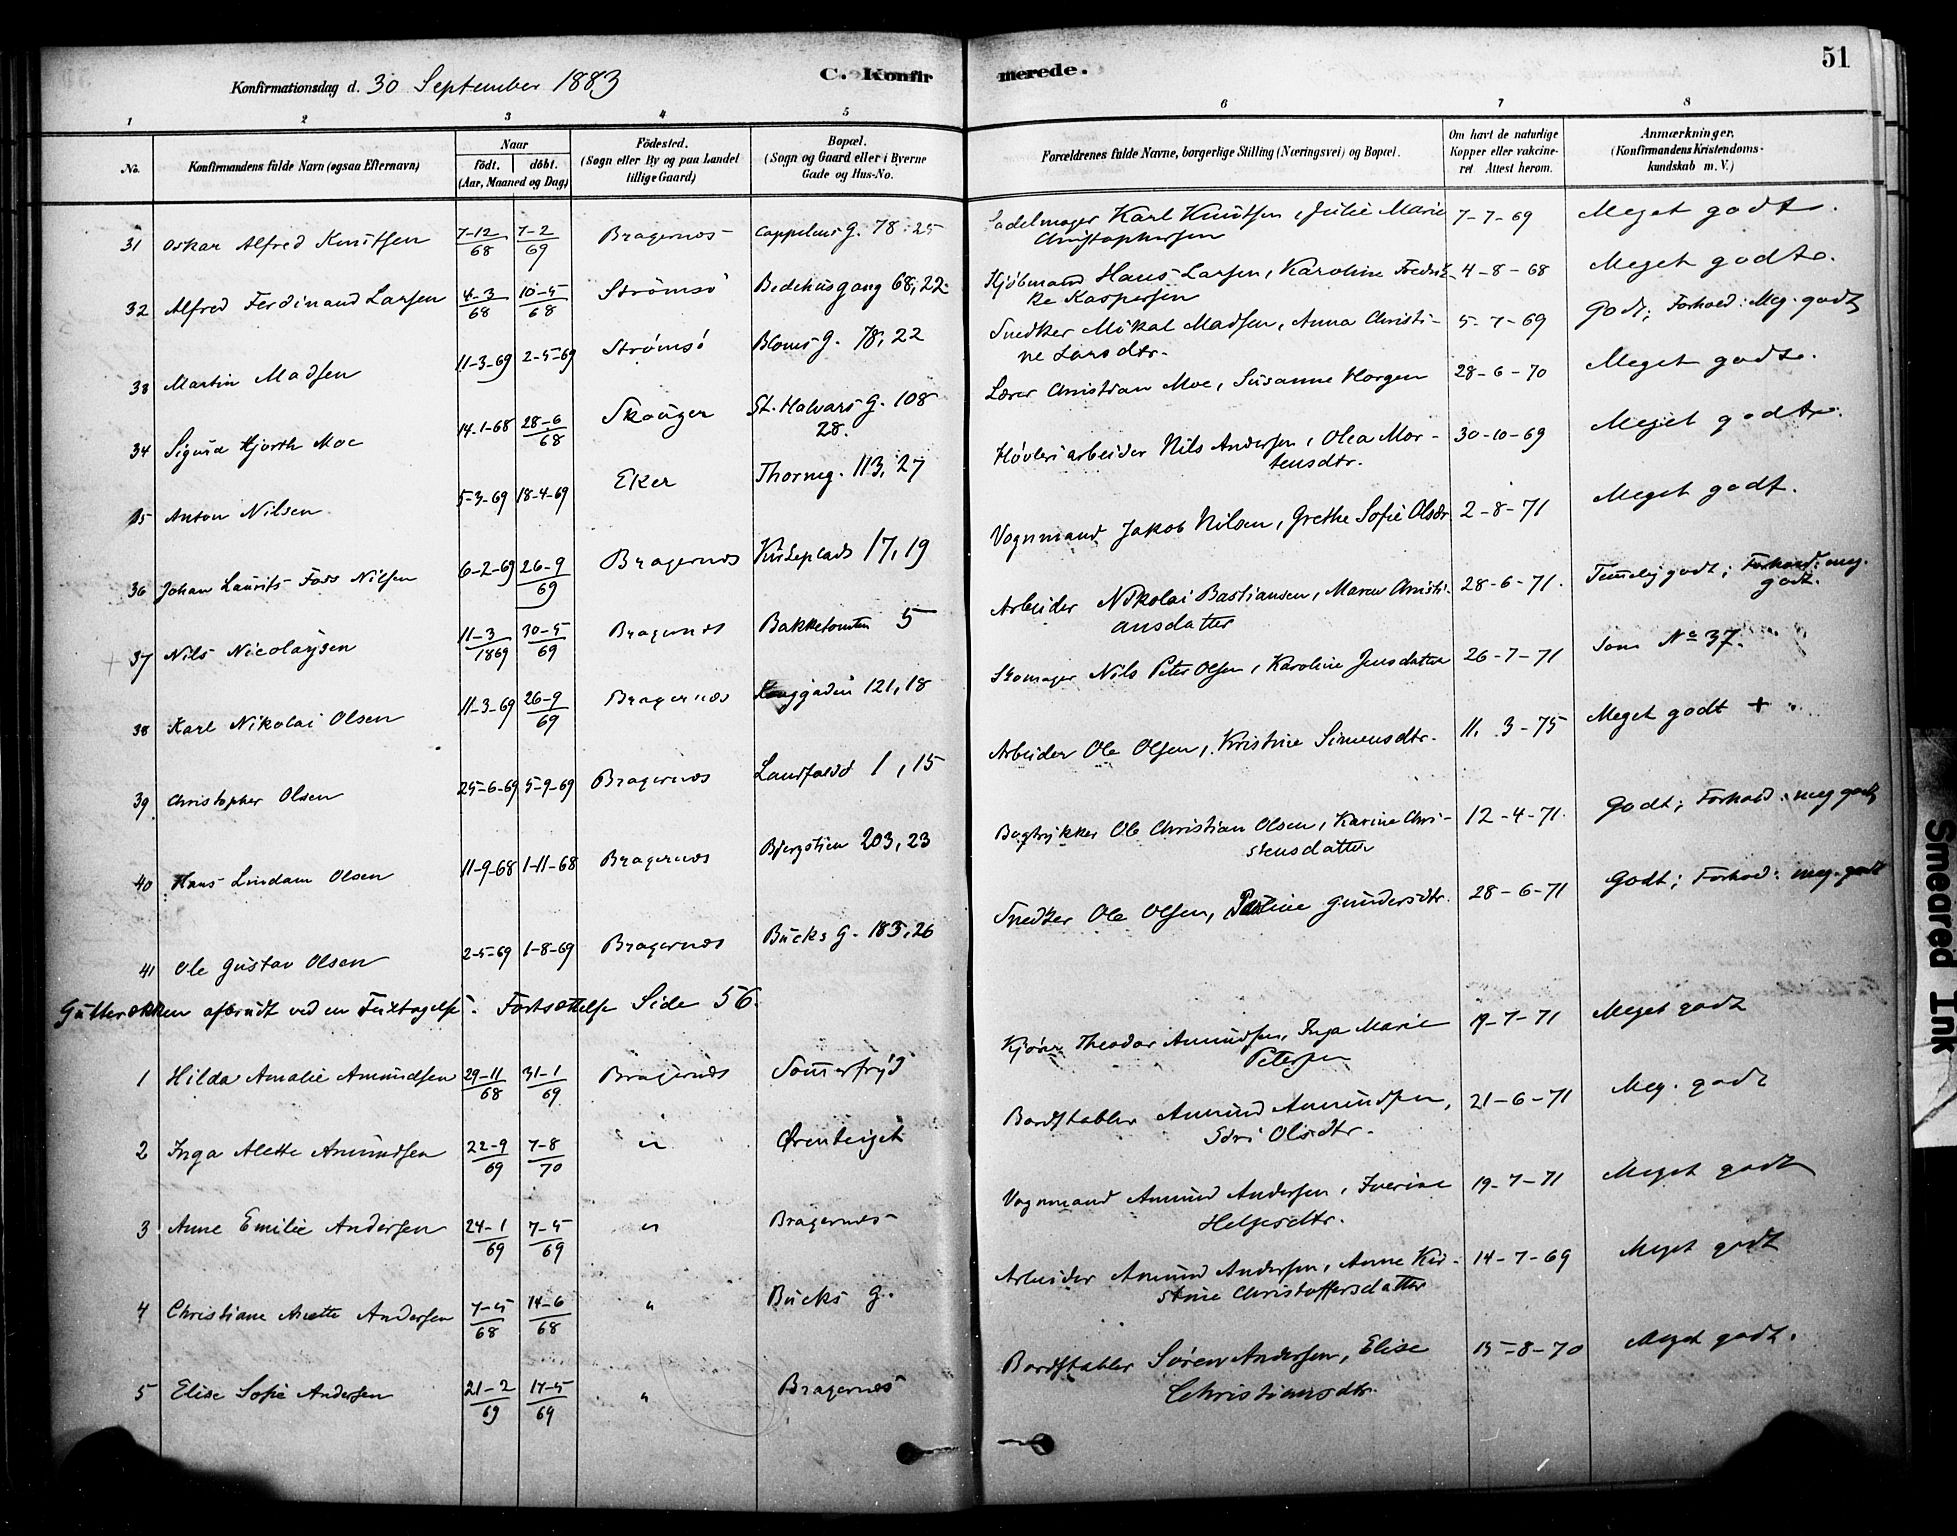 51
C. Konfir merede.
Konfirmationsdag d. 30 September 1883
1 2 3 4 5 6 7 8
No. Konfirmandens fulde Navn (ogsaa Efternavn) Naar födt. döbt. (Aar, Maaned og Dag) Födested. (Sogn eller By og paa Landet tillige Gaard) Bopæl. (Sogn og Gaard eller i Byerne Gade og Hus-No. Forældrenes fulde Navne, borgerlige Stilling (Næringsvei) og Bopæl. Om havt de naturlige Kopper eller vakcineret Attest herom. Anmærkninger. (Konfirmandens Kristendomskundskab m. V.)
31 Oskar Alfred Knutsen 7-12/68 7-2/69 Bragernes Cappelens G. 78, 25 Sadelmager Karl Knutsen, Julie Marie Christophersen 7-7-69 Meget godt.
32 Alfred Ferdinand Larsen 4-3/68 10-5/68 Strømsö Bedehusgang 68, 22 Kjöbmand Hans Larsen, Karoline Fredrikke Kaspersen 4-8-68 Meget godt.
33 Martin Madsen 11-3-69 2-5-69 Strømsö Bloms G. 78, 22 Snedker Mikal Madsen, Anna Christine Larsdtr. 5-7-69 Godt; Forhold: Meg. godt
34 Sigurd Hjorth Moe 14-1-68 28-6/68 Skouger St. Halvars G. 108 28. Lærer Christian Moe, Susanne Horgen 28-6-70 Meget godt.
35 Anton Nilsen 5-3-69 18-4-69 Eker Thorneg. 113, 27 Høvleriarbeider Nils Andersen, Olea Mortensdtr. 30-10-69 Meget godt.
36 Johan Laurits Foss Nilsen 6-2-69 26-9/69 Bragernes Kirkeplads 17, 19 Vognmand Jakob Nilsen, Grethe Sofie Olsdr. 2-8-71 Meget godt.
37 Nils Nicolaysen 11-3/1869 30-5/69 Bragernes Bakketomten 5 Arbeider Nikolai Bastiansen, Maren Christiansdatter 28-6-71. Temmelig godt; Forhold: meg. godt.
38 Karl Nikolai Olsen 11-3-69 26-9/69 Bragernes Langgaden 121, 18 Skomager Nils Peter Olsen, Karoline Jensdatter 26-7-71 Som No 37.
39 Christopher Olsen 25-6-69 5-9-69 Bragernes Landfalds 1, 15 Arbeider Ole Olsen, Kristine Simensdtr. 11. 3-75 Meget godt +
40 Hans Lindam Olsen 11-9-68 1-11-68 Bragernes Bjergstien 203, 23 Bogtrykker Ole Christian Olsen, Karine Christensdatter 12-4-71. Godt; Forhold: meg godt
41 Ole Gustav Olsen 2-5-69 1-8-69 Bragernes Bucks G. 183, 26 Snedker Ole Olsen, Pauline Gundersdtr. 28-6-71 Godt; Forhold: meg. godt
Gutterækken afbrudt ved en Feiltagelse. Fortsættelse Side 56.
1 Hilda Amalie Amundsen 29-11/68 31-1/69 Bragernes Sommerfryd Theodor Amundsen, Inga Marie Petersen 19-7-71 Meget godt
2 Inga Alette Amundsen 22-9/69 7-8/70 " Ørenteiget Bordstabler Amund Amundsen, Olsdtr. 21-6-71 Meg. godt
3 Anne Emilie Andersen 24-1/69 7-5/69 " Bragernes Vognmand Amund Andersen, Iverine Helgesdtr. 19-7-71 Meget godt
4 Christiane Anette Andersen 7-5/68 14-6/68 " Bucks G. Arbeider Amund Andersen, Anne Kirstine Christoffersdatter 14-7-69 Meget godt
5 Elise Sofie Andersen 21-2/69 17-5/69 " Bragernes Bordstabler Søren Andersen, Elise Christiansdtr. 15-8-70 Meget godt.
Smeared Ink